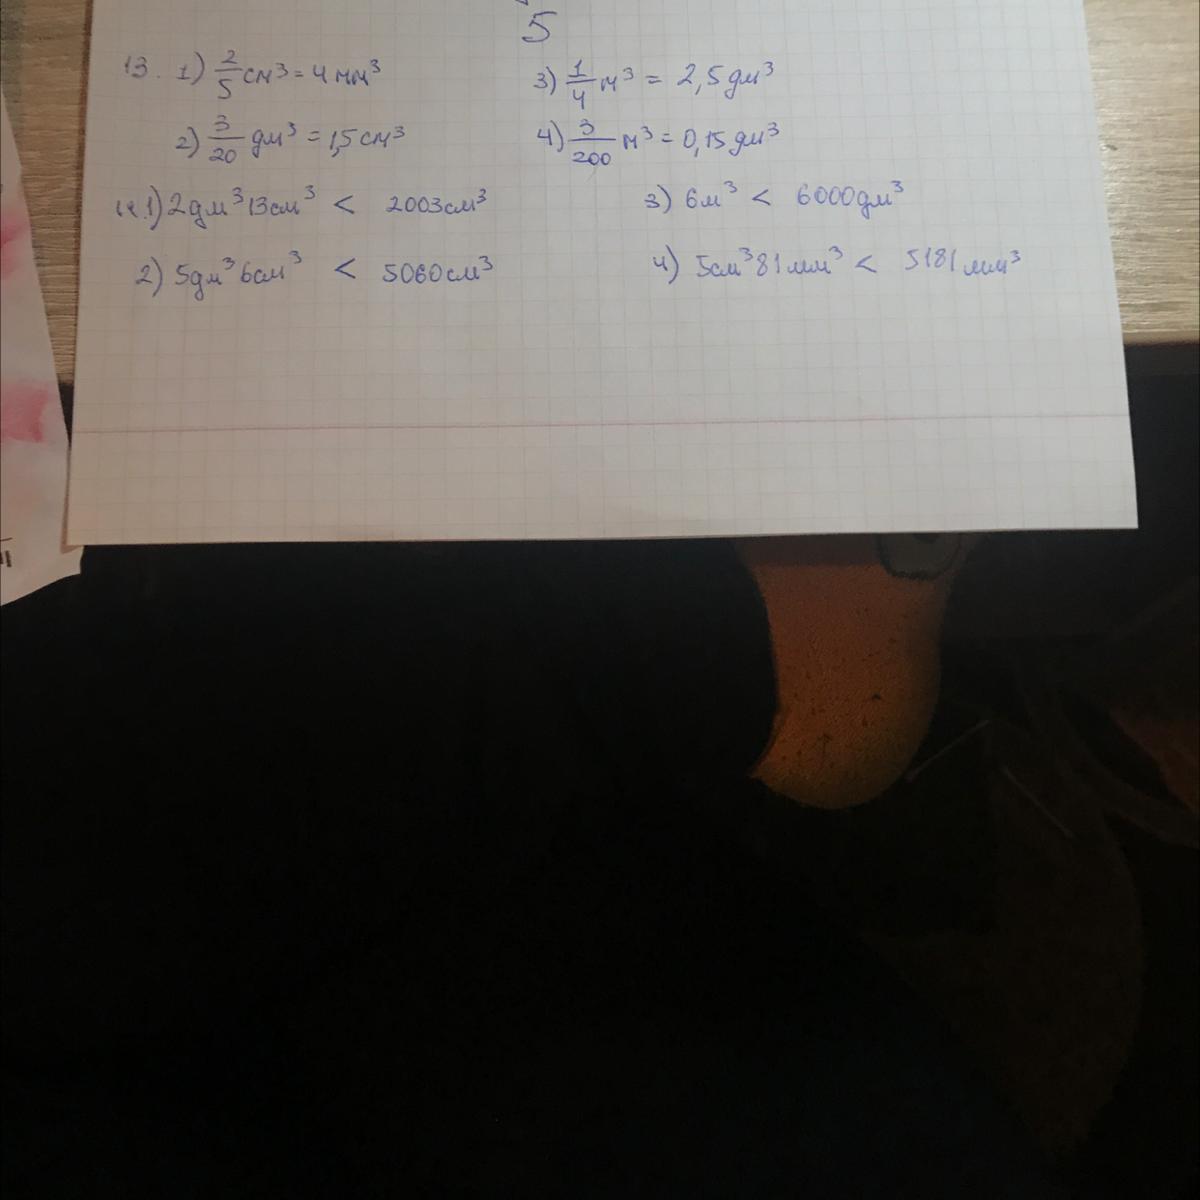 5
13. 1) 2/5 см³ = 4 мм³ 3) 1/4 м³ = 2,5 дм³
2) 3/20 дм³ = 1,5 см³ 4) 3/200 м³ = 0,15 дм³
14. 1) 2 дм³ 13 см³ < 2003 см³ 3) 6 м³ < 6000 дм³
2) 5 дм³ 6 см³ < 5060 см³ 4) 5 см³ 81 мм³ < 5181 мм³